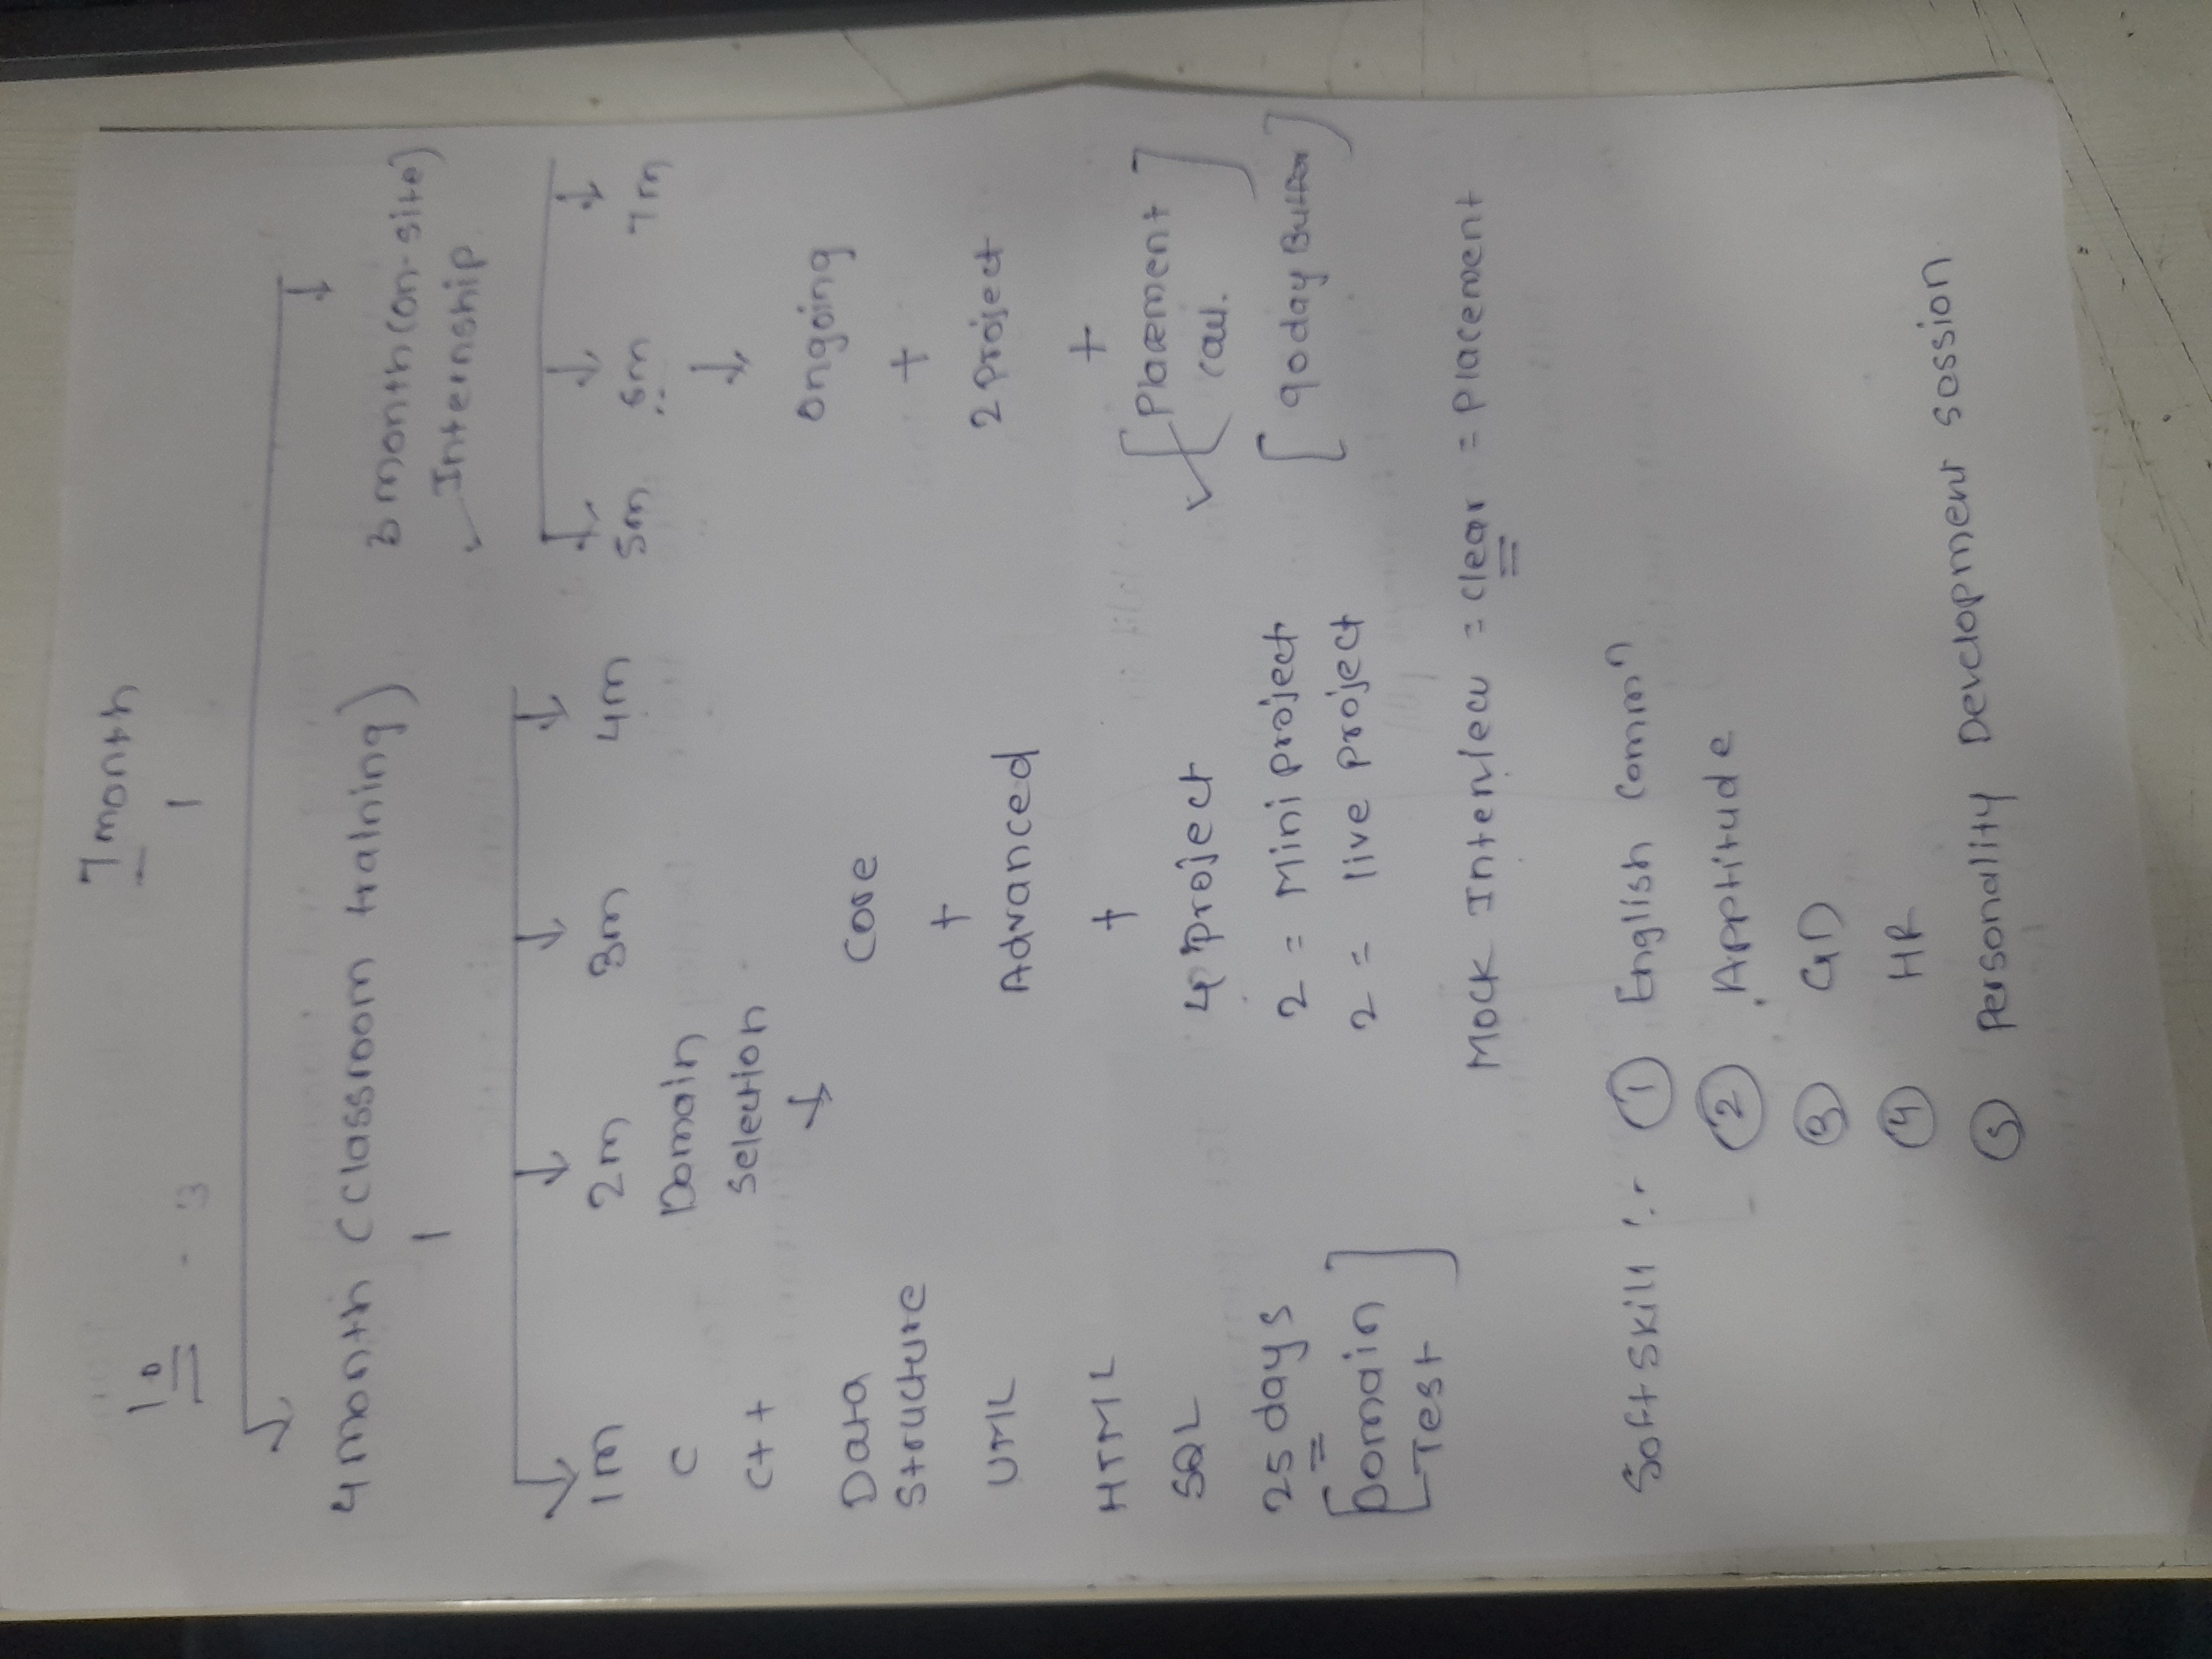 7 month
10
4 month (Classroom training)
3 month (on-site)
Internship
1m 2m 3m 4m
5m 6m 7m
C
C++
Data
Structure
UML
HTML
SQL
25 days
[Domain
Test]
Domain
Selection
Core
+
Advanced
+
4 project
2 = Mini project
2 = live project
Ongoing
+
2 Project
+
[Placement
Call.]
[90 day Buffer]
Mock Interview = Clear = Placement
Soft skill :- ① English Commⁿ
② Apptitude
③ GD
④ HR
⑤ Personality Development Session